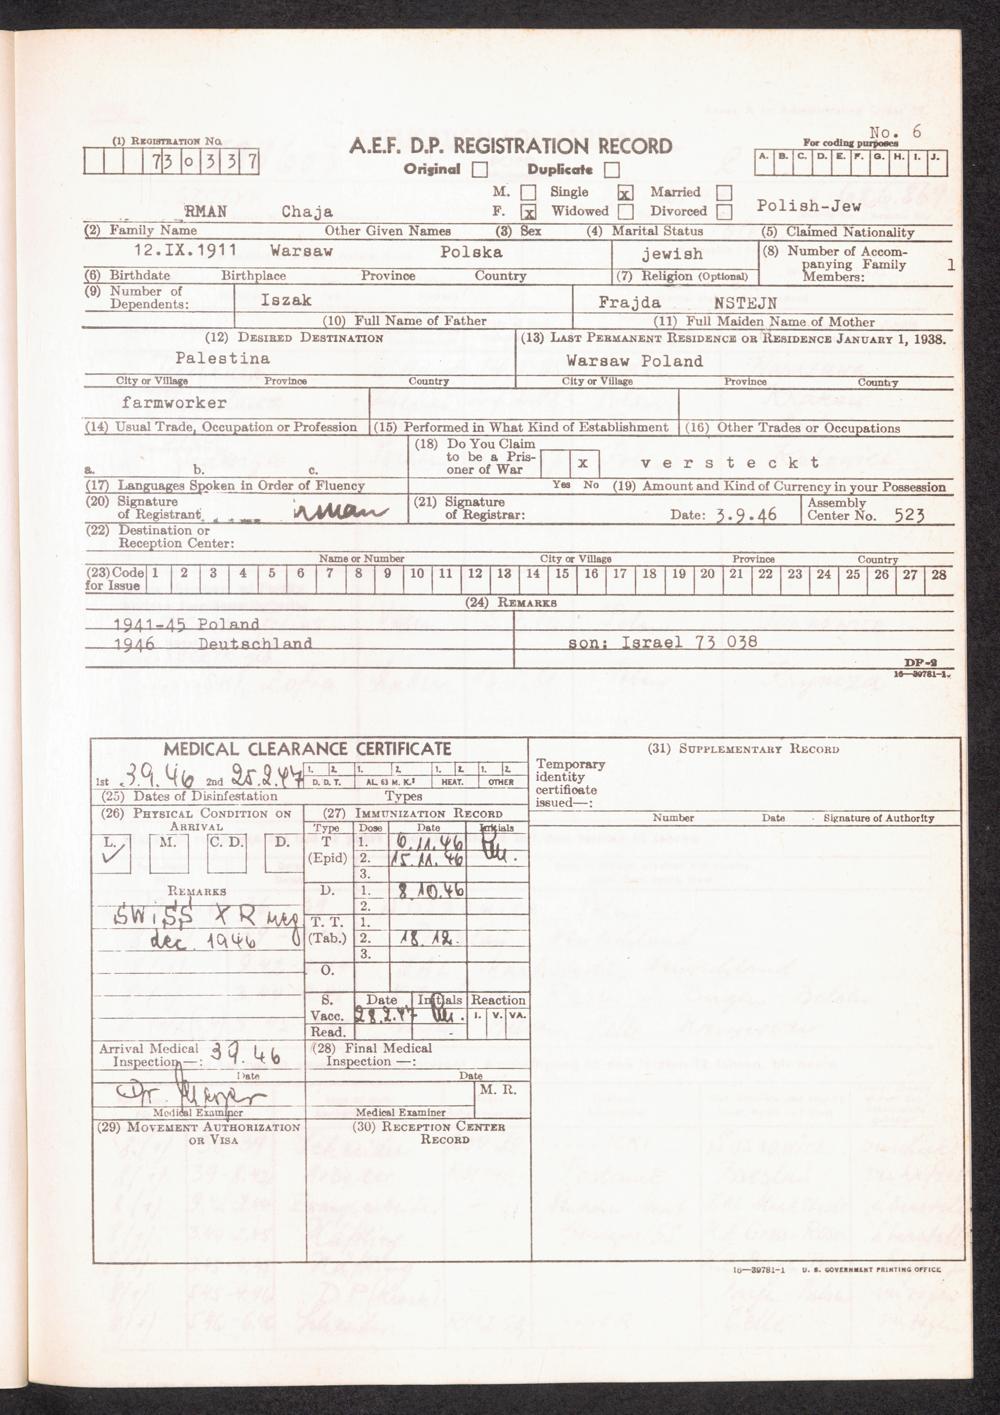 No. 6
(1) REGISTRATION NO.
730337
A.E.F. D.P. REGISTRATION RECORD
Original Duplicate
For coding purposes
A. B. C. D. E. F. G. H. I. J.
M. Single x Married
F. x Widowed Divorced
RMAN Chaja Polish-Jew
(2) Family Name Other Given Names (3) Sex (4) Marital Status (5) Claimed Nationality
12.IX.1911 Warsaw Polska jewish
(6) Birthdate Birthplace Province Country (7) Religion (Optional)
(8) Number of Accompanying Family Members: 1
(9) Number of Dependents:
Iszak
(10) Full Name of Father
Frajda NSTEJN
(11) Full Maiden Name of Mother
(12) DESIRED DESTINATION
Palestina
City or Village Province Country
(13) LAST PERMANENT RESIDENCE OR RESIDENCE JANUARY 1, 1938.
Warsaw Poland
City or Village Province Country
farmworker
(14) Usual Trade, Occupation or Profession (15) Performed in What Kind of Establishment (16) Other Trades or Occupations
a. b. c.
(17) Languages Spoken in Order of Fluency
(18) Do You Claim
to be a Pris-
oner of War
x
Yes No
versteckt
(19) Amount and Kind of Currency in your Possession
(20) Signature
of Registrant rman
(21) Signature
of Registrar:
Date: 3.9.46
Assembly
Center No. 523
(22) Destination or
Reception Center:
Name or Number City or Village Province Country
(23) Code for Issue 1 2 3 4 5 6 7 8 9 10 11 12 13 14 15 16 17 18 19 20 21 22 23 24 25 26 27 28
(24) REMARKS
1941-45 Poland
1946 Deutschland son: Israel 73 038
DP-2
16—39781-1.
MEDICAL CLEARANCE CERTIFICATE
1st 3.9.46 2nd 25.2.47
1. 2. 1. 2. 1. 2. 1. 2.
D. D. T. AL. 63 M. K.² HEAT. OTHER
(25) Dates of Disinfestation Types
(26) PHYSICAL CONDITION ON
ARRIVAL
L. M. C. D. D.
✓
REMARKS
SWiSS X R neg
dec. 1946
(27) IMMUNIZATION RECORD
Type Dose Date Initials
T 1. 6.11.46
(Epid) 2. 15.11.46
3.
D. 1. 8.10.46
2.
T. T. 1.
(Tab.) 2. 18.12.
3.
O.
S. Date Initials Reaction
Vacc. 28.2.47 I. V. VA.
Read.
Arrival Medical
Inspection—: 3 9. 46
Date
Dr.
Medical Examiner
(28) Final Medical
Inspection —:
Date
M. R.
Medical Examiner
(29) MOVEMENT AUTHORIZATION
OR VISA
(30) RECEPTION CENTER
RECORD
(31) SUPPLEMENTARY RECORD
Temporary
identity
certificate
issued—:
Number Date Signature of Authority
16—39781-1 U. S. GOVERNMENT PRINTING OFFICE